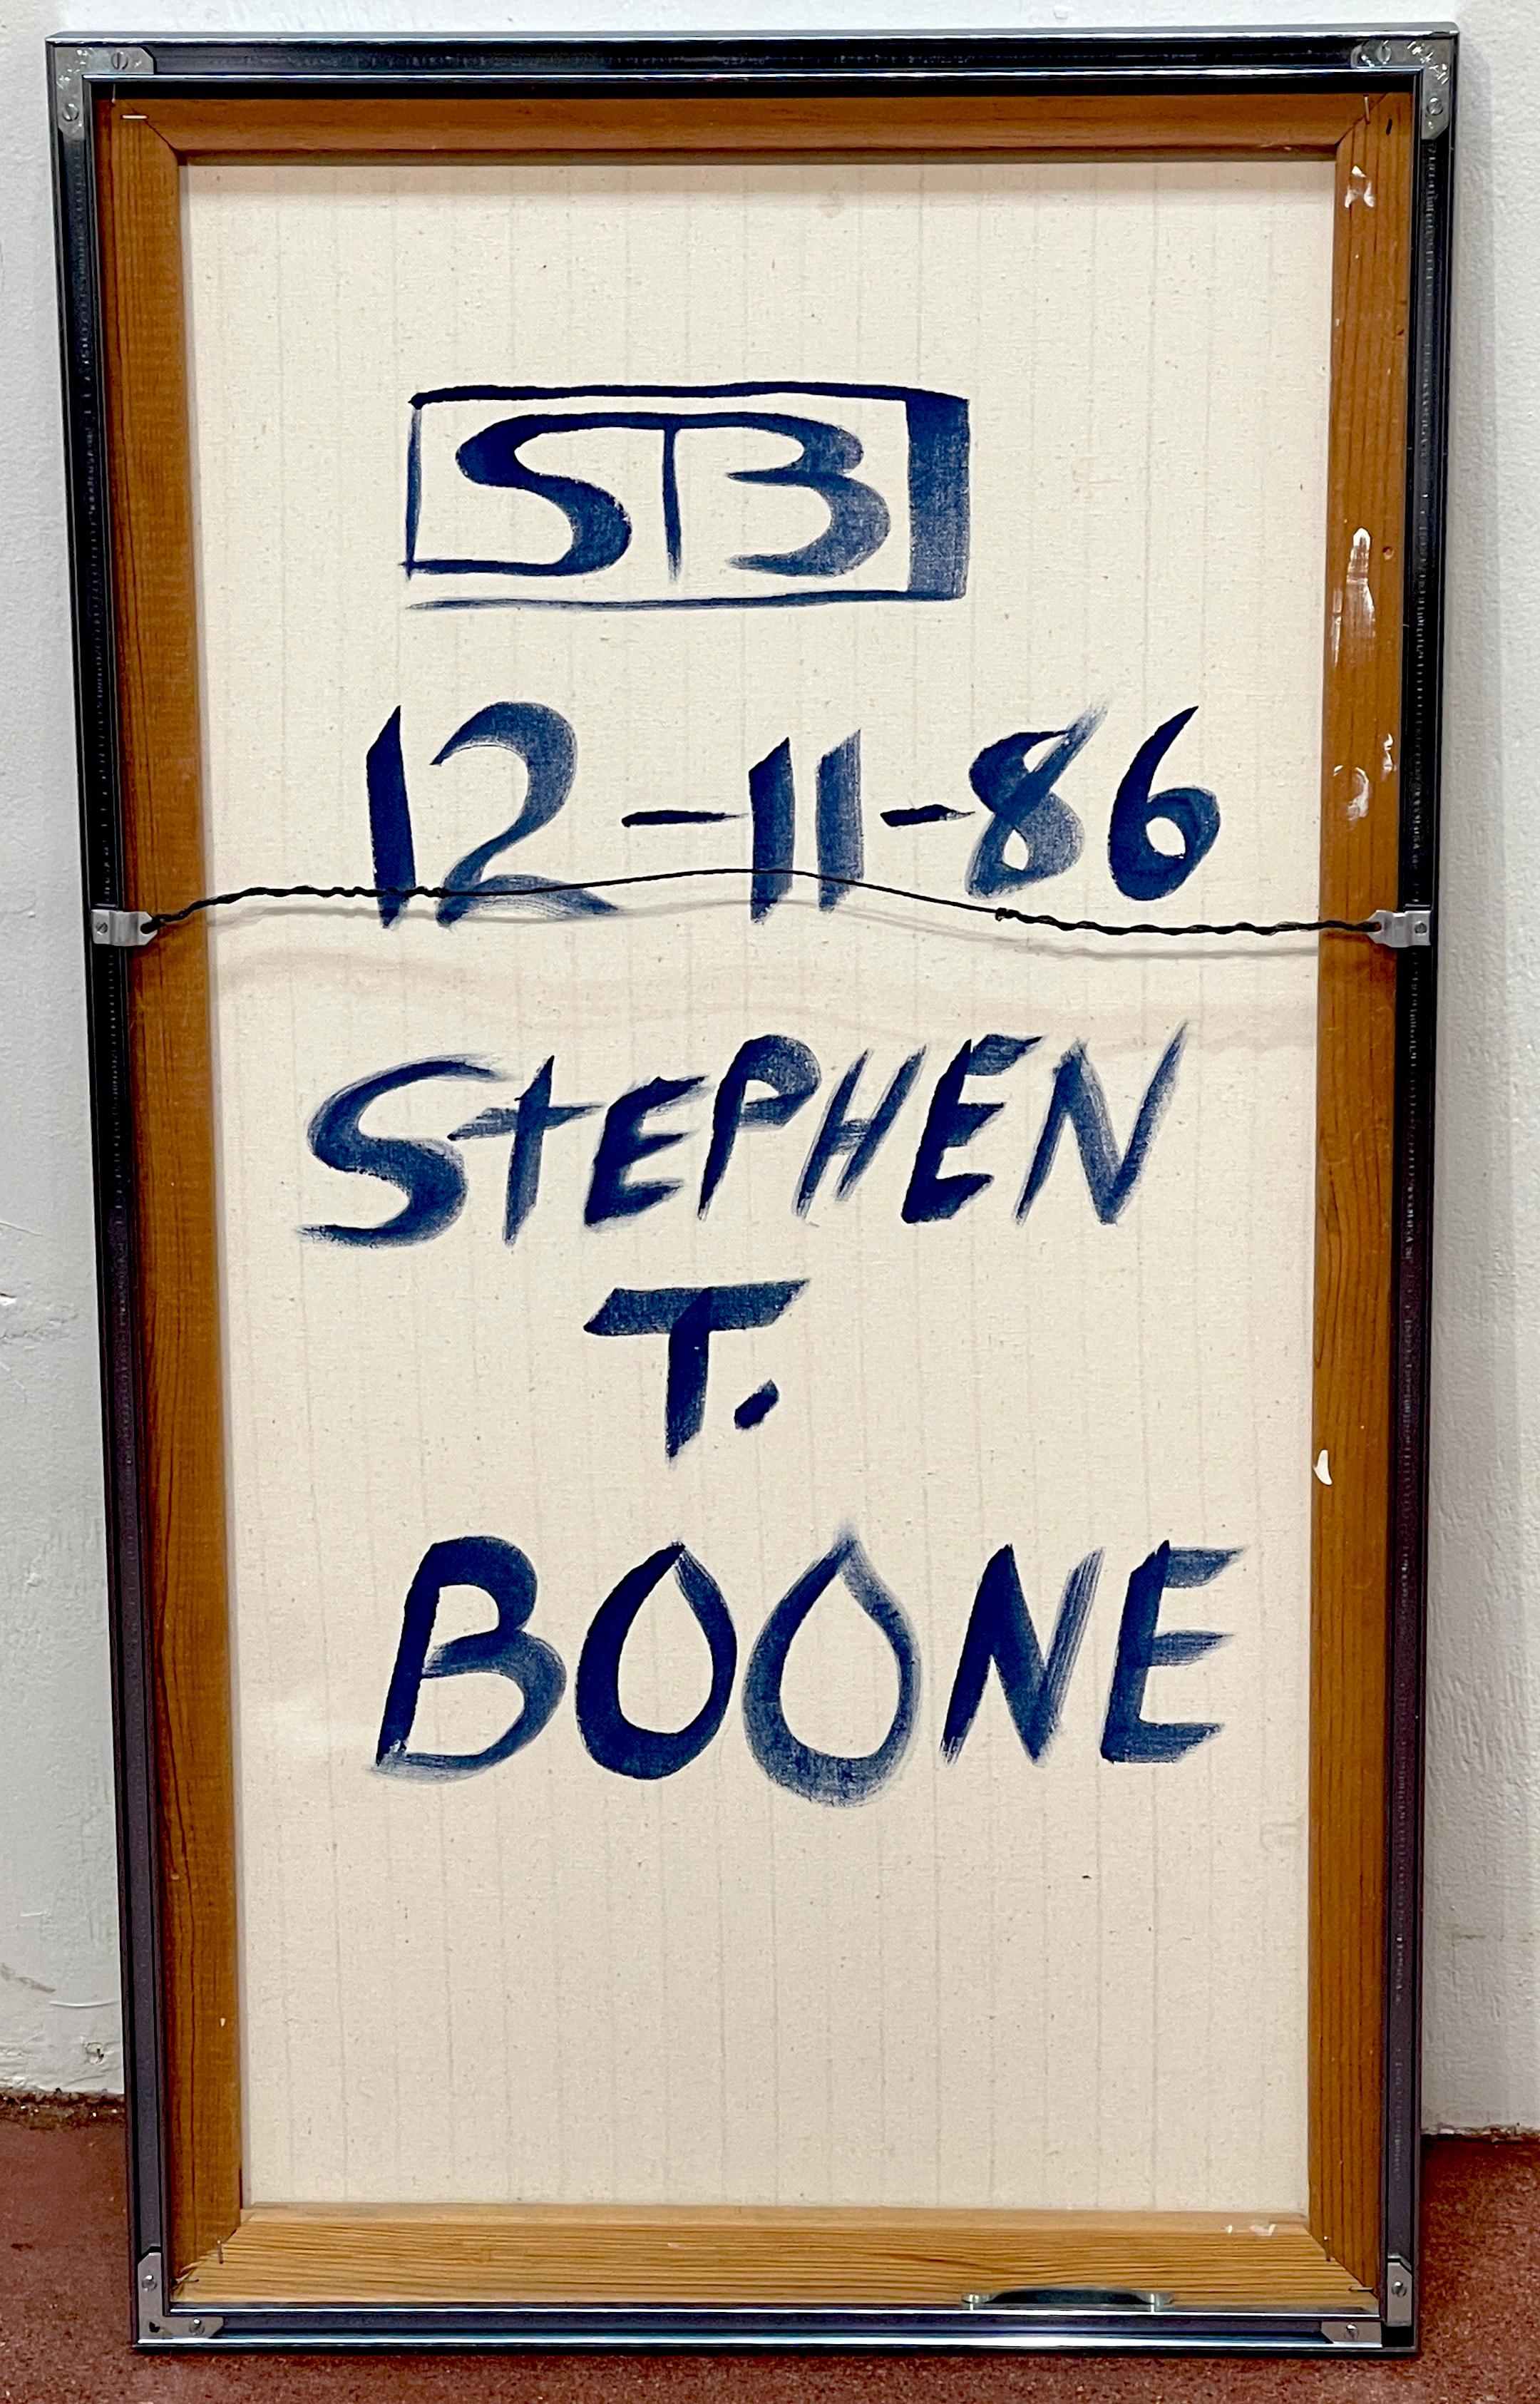 STB
12-11-86
STEPHEN
T.
BOONE